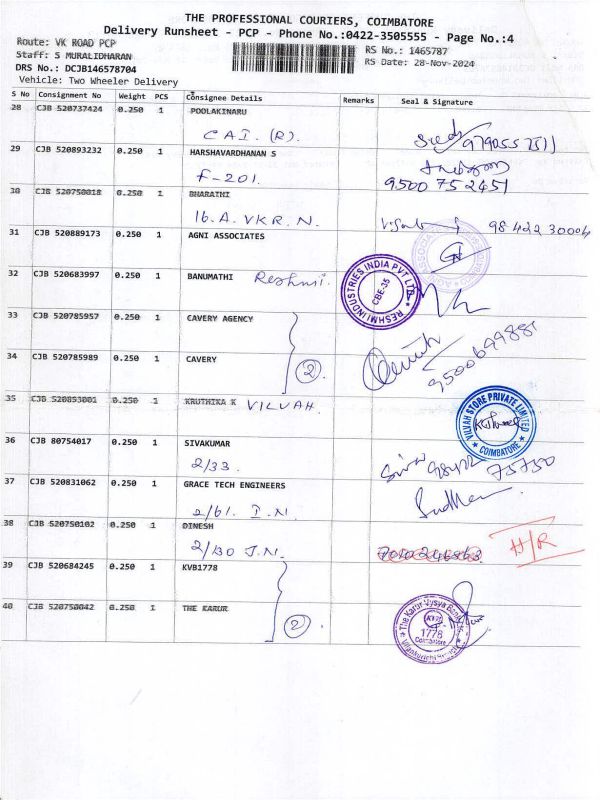 THE PROFESSIONAL COURIERS, COIMBATORE
Delivery Runsheet - PCP - Phone No.:0422-3505555 - Page No.:4
Route: VK ROAD PCP
RS No.: 1465787
Staff: S MURALIDHARAN
RS Date: 28-Nov-2024
DRS No.: DCJB146578704
Vehicle: Two Wheeler Delivery
S No Consignment No Weight PCS Consignee Details Remarks Seal & Signature
28 CJB 520737424 0.250 1 POOLAKINARU
CAI. (R). 
29 CJB 520893232 0.250 1 HARSHAVARDHANAN S
F-201. 9500752451
30 CJB 520750018 0.250 1 BHARATHI
16.A. VKR.N. 9842230004
31 CJB 520889173 0.250 1 AGNI ASSOCIATES
32 CJB 520683997 0.250 1 BANUMATHI Reshmi.
RESHMI INDUSTRIES INDIA PVT LTD
CBE-35
33 CJB 520785957 0.250 1 CAVERY AGENCY
34 CJB 520785989 0.250 1 CAVERY
2
35 CJB 520893001 0.250 1 KRUTHIKA K VILVAH.
VILVAH STORE PRIVATE LIMITED
COIMBATORE
36 CJB 80754017 0.250 1 SIVAKUMAR
2/33. Siva 98422 75750
37 CJB 520831062 0.250 1 GRACE TECH ENGINEERS
2/61. I.N.
38 CJB 520750102 0.250 1 DINESH
2/130 J.N. H/R
39 CJB 520684245 0.250 1 KVB1778
40 CJB 520750042 0.250 1 THE KARUR
2
The Karur Vysya Bank
KVB
1778
Coimbatore